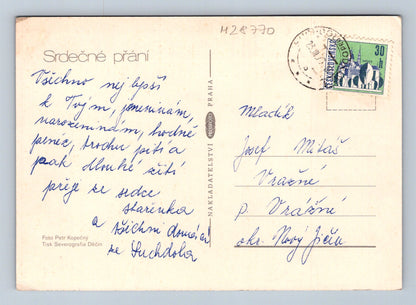 M28770
Srdečné přání
Všechno nejlepší
k Tvým jmeninám,
narozeninám, hodně
peněz, trochu pití a
pak dlouhé žití
přeje ze srdce
stařenka
a všichni domácí
ze Suchdola
Foto Petr Kopečný
Tisk Severografia Děčín
NAKLADATELSTVÍ
PRAHA
30
h
ČESKOSLOVENSKO
Mladík
Josef Mitáš
Vražné
p. Vražné
okr. Nový Jičín